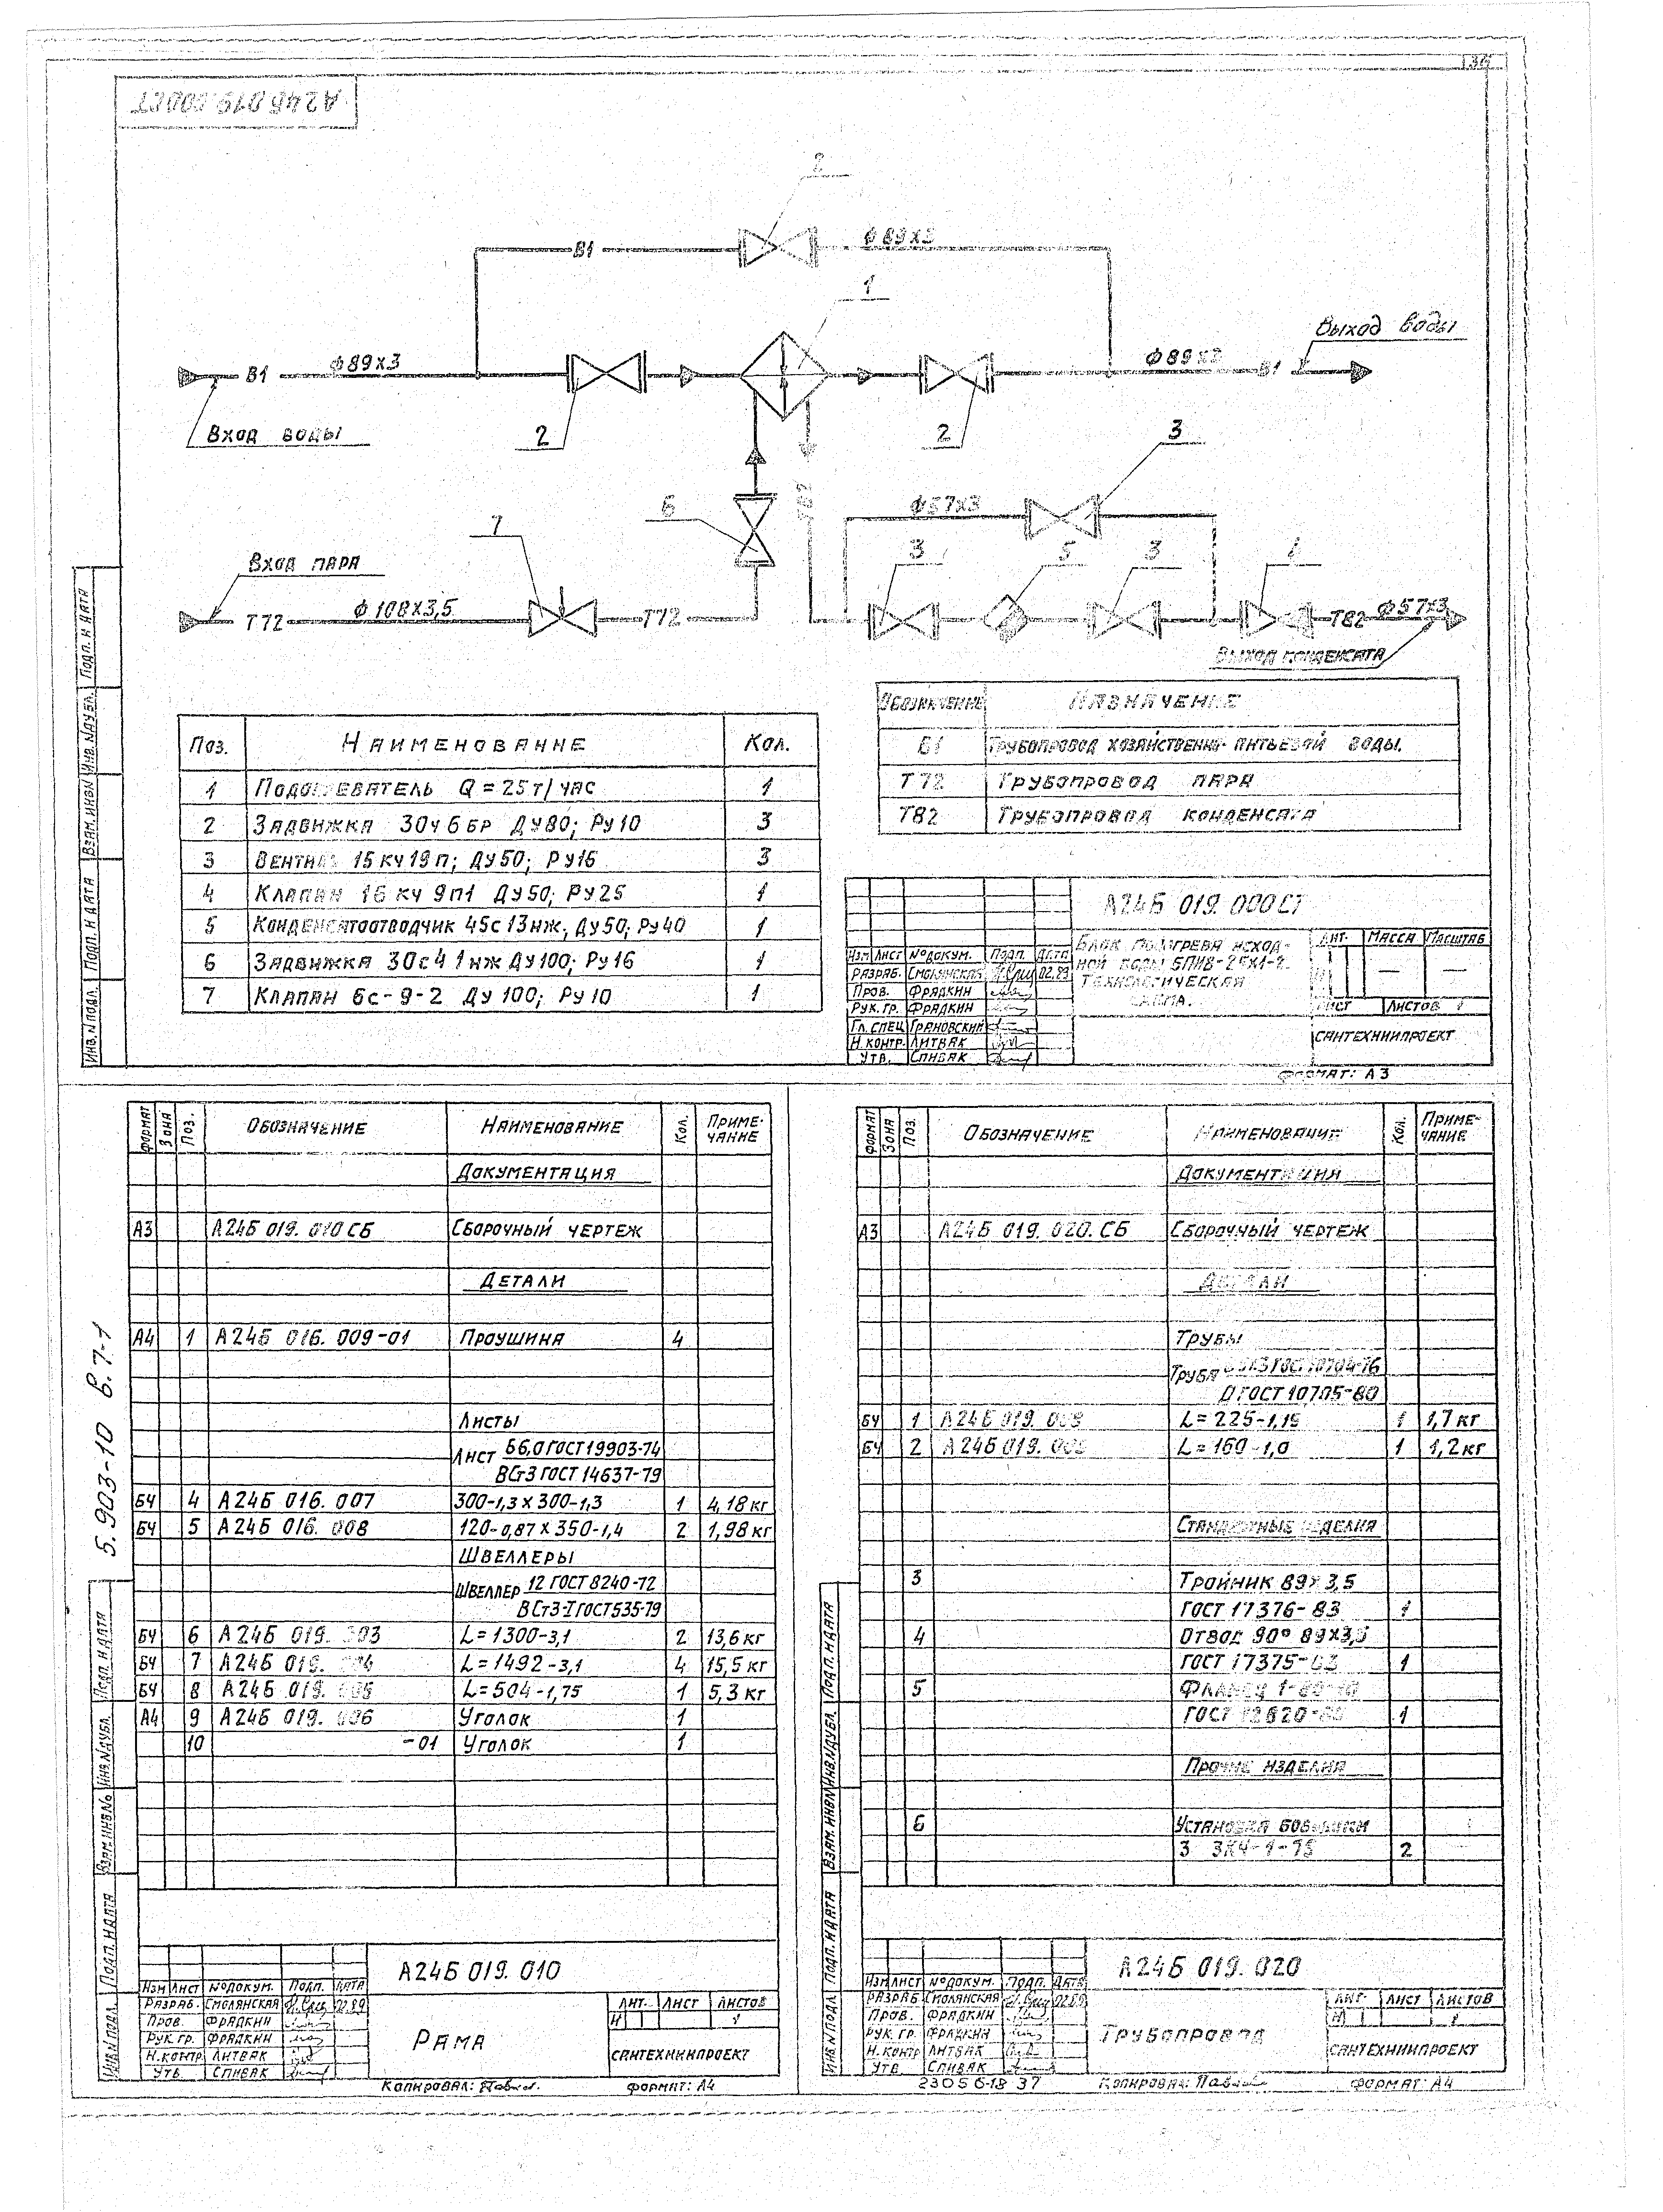 А24Б 019. 000СТ
2
В1
Ф 89х3
1
Выход воды
В1
Ф89х3
Ф89х
В1
Вход воды
2
2
3
Т82
Ф57х3
6
7
3
5
3
Вход пара
Т72
Ф 108х3,5
Т72
Т82
Ф57х3
Выход конденсата
Поз.
Наименование
Кол.
1 Подогреватель Q = 25т/час 1
2 Задвижка 30ч6бр Ду80; Ру10 3
3 Вентиль 15кч19п; Ду50; Ру16 3
4 Клапан 16кч9п1 Ду50; Ру25 1
5 Конденсатоотводчик 45с13нж, Ду50; Ру40 1
6 Задвижка 30с41нж Ду100; Ру16 1
7 Клапан 6с-9-2 Ду100; Ру10 1
Обозначение Назначение
В1 Трубопровод хозяйственно-питьевой воды.
Т72 Трубопровод пара
Т82 Трубопровод конденсата
А24Б 019. 000СТ
Блок подогрева исход-
ной воды БПИВ-25х1-2.
Технологическая
схема.
Лит. Масса Масштаб
— —
Лист Листов 1
Сантехниипроект
Изм Лист №докум. Подп. Дата
Разраб. Смолянская 02.89
Пров. Фрядкин
Рук. гр. Фрядкин
Гл. спец Грановский
Н. контр. Литвак
Утв. Спивак
Формат: А3
Инв. № подл. Подп. и дата Взам. инв № Инв. № дубл. Подп. и дата
5.903-10 в.7-1
Формат Зона Поз. Обозначение Наименование Кол. Приме-
чание
Документация
А3 А24Б 019. 010 СБ Сборочный чертеж
Детали
А4 1 А24Б 016. 009-01 Проушина 4
Листы
Лист Б6,0 ГОСТ 19903-74
ВСт3 ГОСТ 14637-79
БЧ 4 А24Б 016. 007 300-1,3 х 300-1,3 1 4,18 кг
БЧ 5 А24Б 016. 008 120-0,87 х 350-1,4 2 1,98 кг
Швеллеры
Швеллер 12 ГОСТ 8240-72
ВСт3-I ГОСТ 535-79
БЧ 6 А24Б 019. 003 L= 1300-3,1 2 13,6 кг
БЧ 7 А24Б 019. 004 L= 1492-3,1 4 15,5 кг
БЧ 8 А24Б 019. 005 L= 504-1,75 1 5,3 кг
А4 9 А24Б 019. 006 Уголок 1
10 -01 Уголок 1
А24Б 019. 010
Изм Лист №докум. Подп. Дата
Разраб. Смолянская 02.89
Пров. Фрядкин
Рук гр. Фрядкин
Н. контр. Литвак
Утв. Спивак
Рама
Лит. Лист Листов
И 1
Сантехниипроект
Копировал:
Формат: А4
Инв. № подл. Подп. и дата Взам. инв № Инв. № дубл. Подп. и дата
Формат Зона Поз. Обозначение Наименование Кол. Приме-
чание
Документация
А3 А24Б 019. 020. СБ Сборочный чертеж
Детали
Трубы
Труба ГОСТ 10704-76
Д ГОСТ 10705-80
БЧ 1 А24Б 019. L= 225-1,15 1 1,7 кг
БЧ 2 А24Б 019. L= 160-1,0 1 1,2 кг
Стандартные изделия
3 Тройник 89х3,5
ГОСТ 17376-83 1
4 Отвод 90° 89х3,5
ГОСТ 17375-83 1
5 Фланец 1-80-10
ГОСТ 1
Прочие изделия
6 Установка бобышки
3 ЗК4-1-75 2
А24Б 019. 020
Изм Лист №докум. Подп. Дата
Разраб Смолянская 02.89
Пров. Фрядкин
Рук. гр. Фрядкин
Н. контр Литвак
Утв Спивак
Трубопровод
Лит Лист Листов
И 1
Сантехниипроект
23056-18 37
Копировал:
Формат: А4
Инв. № подл Подп. и дата Взам. инв № Инв. № дубл. Подп. и дата